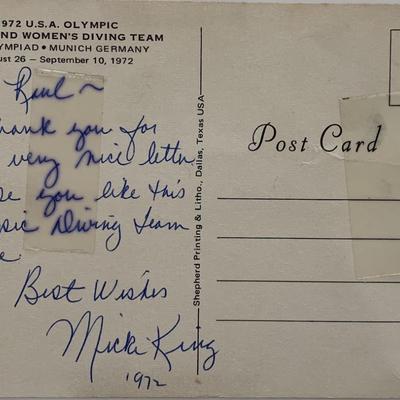 1972 U.S.A. OLYMPIC
ND WOMEN'S DIVING TEAM
YMPIAD • MUNICH GERMANY
ust 26 – September 10, 1972
Raul ~
hank you for
very nice letter
se you like this
pic Diving Team
e.
Best Wishes
Micki King
1972
Shepherd Printing & Litho., Dallas, Texas USA
Post Card